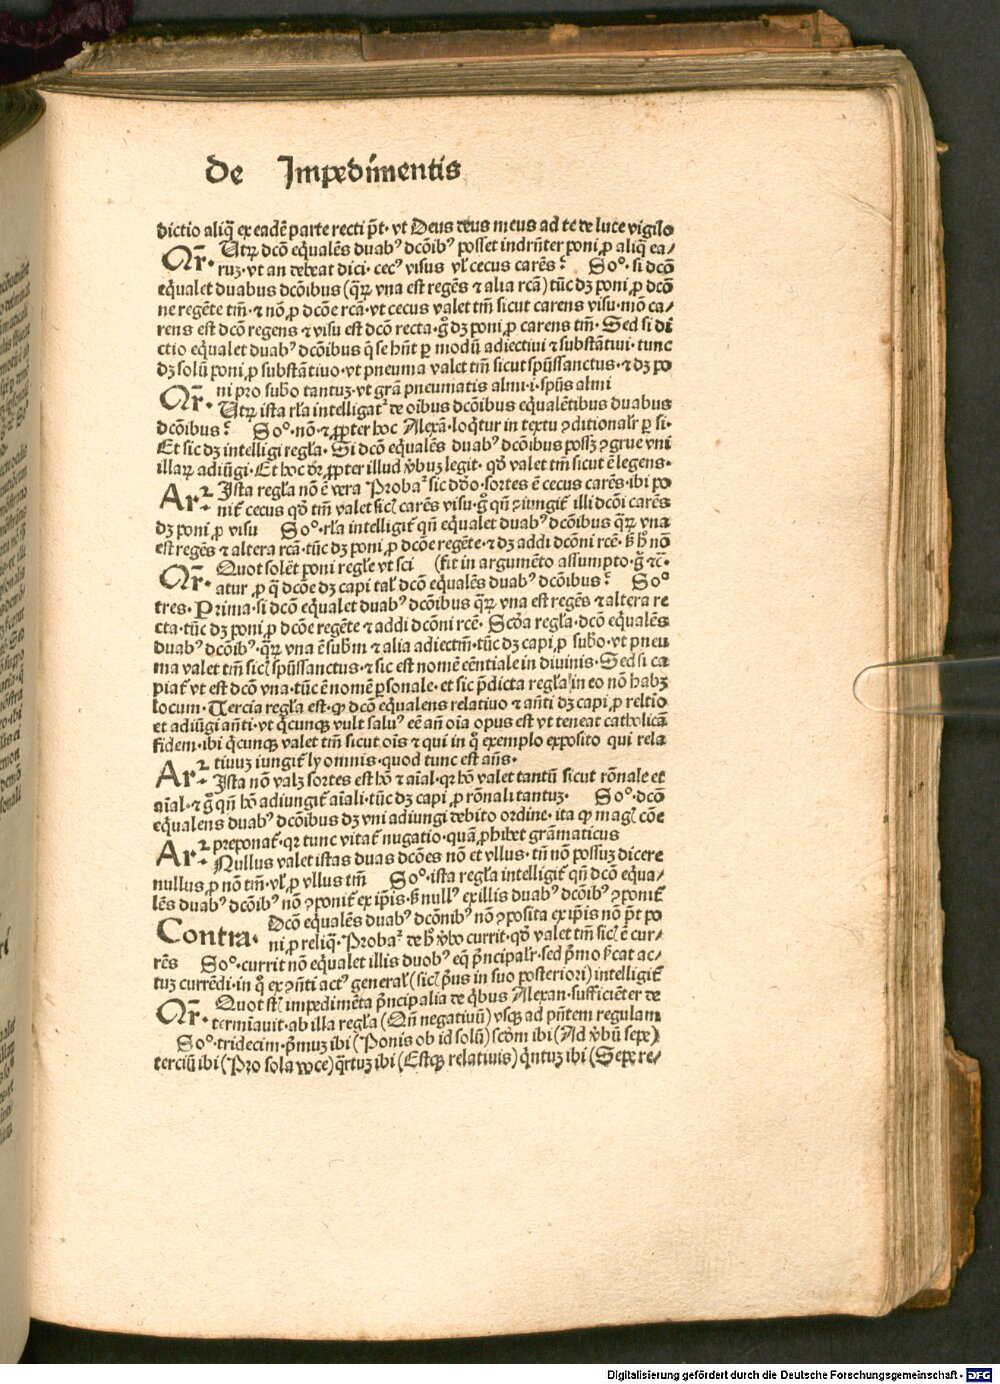 De Impedimentis
dictio aliq̄ ex eadē parte recti p̄t· vt Deus deus meus ad te de luce vigilo
Qr̄· Utrꝝ dcō eq̄ualēs duabꝰ dcōibꝰ posset indr̄nter poni ꝓ aliq̄ ea/
ruꝫ· vt an debeat dici· cecꝰ visus vl̓ cecus carēs? So°· si dcō
eq̄ualet duabus dcōibus (q̄rꝝ vna est regēs ⁊ alia rcā) tūc dꝫ poni ꝓ dcō
ne regēte tm̄· ⁊ nō ꝓ dcōe rcā· vt cecus valet tm̄ sicut carens visu· mō ca/
rens est dcō regens ⁊ visu est dcō recta· g̊ dꝫ poni ꝓ carens tm̄· Sed si di
ctio eq̄ualet duabꝰ dcōibus q̄ se hn̄t ꝑ modū adiectiui ⁊ substātiui· tunc
dꝫ solū poni ꝓ substātiuo· vt pneuma valet tm̄ sicut spūssanctus· ⁊ dꝫ po
ni pro subō tantuꝫ· vt grā pneumatis almi· i· spūs almi
Qr̄· Utrꝝ ista rl̓a intelligat᷒ de oībus dcōibus equalētibus duabus
dcōibus? So°· nō· ⁊ ꝓpter hoc Alexā· loq̄tur in textu ꝯditionalr̄ ꝑ si·
Et sic dꝫ intelligi regl̓a· Si dcō eq̄ualēs duabꝰ dcōibus possꝫ ꝯgrue vni
illaꝝ adiūgi· Et hoc dr̄ ꝓpter illud v̓buꝫ legit· qd̓ valet tm̄ sicut ē legens·
Ar᷒· Ista regl̓a nō ē vera Probat᷒ sic dd̓o· sortes ē cecus carēs· ibi po
nit᷒ cecus qd̓ tm̄ valet sicl̓ carēs visu· g̊ qn̄ ꝯiungit᷒ illi dcōi carēs
dꝫ poni ꝓ visu So°· rl̓a intelligit᷒ qn̄ eq̄ualet duabꝰ dcōibus q̄rꝝ vna
est regēs ⁊ altera rcā· tūc dꝫ poni ꝓ dcōe regēte· ⁊ dꝫ addi dcōni rcē· s̄ h̄ nō
Qr̄· Quot solēt poni regl̓e vt sci (fit in argumēto assumpto· g̊ ⁊c̄·
atur ꝓ q̄ dcōe dꝫ capi tal̓ dcō equalēs duabꝰ dcōibus? So°
tres· Prima· si dcō eq̄ualet duabꝰ dcōibus q̄rꝝ vna est regēs ⁊ altera re
cta· tūc dꝫ poni ꝓ dcōe regēte ⁊ addi dcōni rcē· Scd̓a regl̓a· dcō equalēs
duabꝰ dcōibꝰ· q̄rꝝ vna ē subm̄ ⁊ alia adiectm̄· tūc dꝫ capi ꝓ subō· vt pneu
ma valet tm̄ sicl̓ spūssanctus· ⁊ sic est nomē eēntiale in diuinis· Sed si ca
piat᷒ vt est dcō vna· tūc ē nomē ꝑsonale· et sic p̄dicta regl̓a in eo nō habꝫ
locum· Tercia regl̓a est· ꝙ dcō equalens relatiuo ⁊ an̄ti dꝫ capi ꝓ reltīo
et adiūgi an̄ti· vt q̄cunqꝫ vult saluꝰ eē an̄ oīa opus est vt teneat catholicā
fidem· ibi q̄cunqꝫ valet tm̄ sicut oīs ⁊ qui in q̄ exemplo exposito qui rela
tiuuꝫ iungit᷒ ly omnis· quod tunc est an̄s·
Ar᷒· Ista nō valꝫ sortes est hō ⁊ aīal· qr hō valet tantū sicut rōnale et
aīal· ⁊ g̊ qn̄ hō adiungit᷒ aīali· tūc dꝫ capi ꝓ rōnali tantuꝫ· So°· dcō
eq̄ualens duabꝰ dcōibus dꝫ vni adiungi debito ordine· ita ꝙ magꝭ cōe
preponat᷒· qr tunc vitat᷒ nugatio· quā ꝓhibet grāmaticus
Ar᷒· Nullus valet istas duas dcōes nō et vllus· tn̄ nō possuꝫ dicere
nullus ꝓ nō tm̄· vl̓ ꝓ vllus tm̄ So°· ista regl̓a intelligit᷒ qn̄ dcō equa/
lēs duabꝰ dcōibꝰ nō ꝯponit᷒ ex ip̄is· s̄ nullꝰ ex illis duabꝰ dcōibꝰ ꝯponit᷒
Contra· Dcō equalēs duabꝰ dcōnibꝰ nō ꝯposita ex ip̄is nō p̄t po
ni ꝓ reliq̄· Probat᷒ de h̄ v̓bo currit· qd̓ valet tm̄ sicl̓ ē cur/
rēs So°· currit nō equalet illis duobꝰ eq̄ p̄ncipalr̄· sed p̄mo s̓icat ac/
tuꝫ currēdi· in q̄ ex ꝯn̄ti actꝰ general̓ (sicl̓ p̄us in suo posteriori) intelligit᷒
Qr̄· Quot st̄ impedimēta p̄ncipalia de q̄bus Alexan· sufficiēter de
termīauit· ab illa regl̓a (Qn̄ negatiuū) vsqꝫ ad p̄ntem regulam
So°· tridecim· p̄muꝫ ibi (Ponis ob id solū) scd̓m ibi (Ad v̓bū sepe)
terciū ibi (Pro sola voce) q̄rtuꝫ ibi (Estqꝫ relatiuis) q̄ntuꝫ ibi (Sepe re/
Digitalisierung gefördert durch die Deutsche Forschungsgemeinschaft - DFG